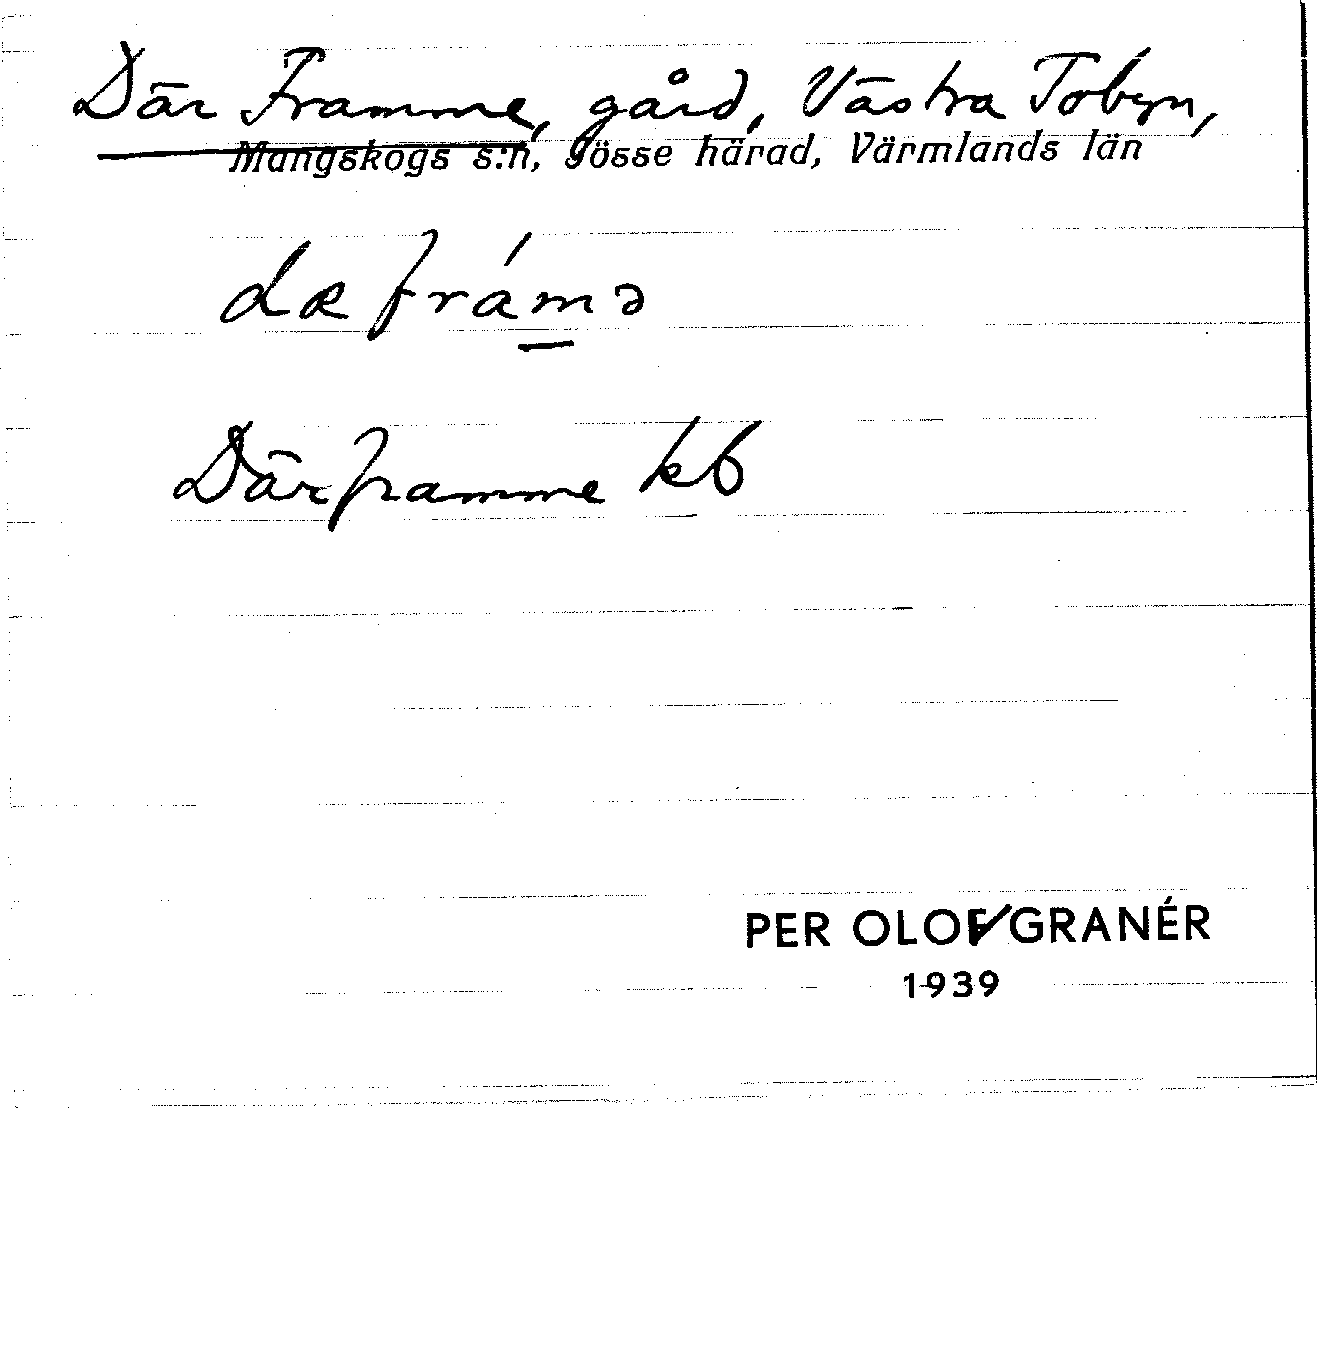 Där Framme, gård, Västra Tobyn,
Mangskogs s:n, Jösse härad, Värmlands län
dæ frámə
Därframme kb
PER OLOF GRANÉR
1939